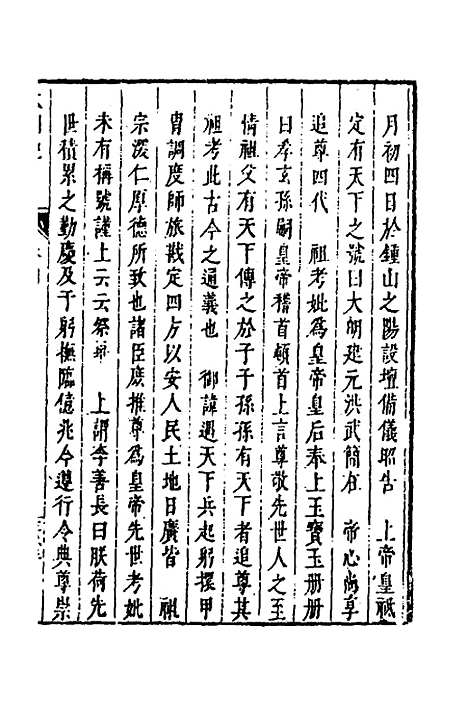 月初四日於鍾山之陽設壇備儀昭告　上帝皇祇
定有天下之號曰大明建元洪武簡在　帝心尚享
追尊四代　祖考妣爲皇帝皇后奉上玉寶玉册册
曰孝玄孫嗣皇帝稽首頓首上言尊敬先世人之至
情祖父有天下傳之於子子孫孫有天下者追尊其
祖考此古今之通義也　御諱遇天下兵起躬擐甲
冑調度師旅戡定四方以安人民土地日廣皆　祖
宗深仁厚德所致也諸臣庶推尊爲皇帝先世考妣
未有稱號謹上云云祭畢　上謂李善長曰朕荷先
世積累之勤慶及于躬撫臨億兆今遵行令典尊崇